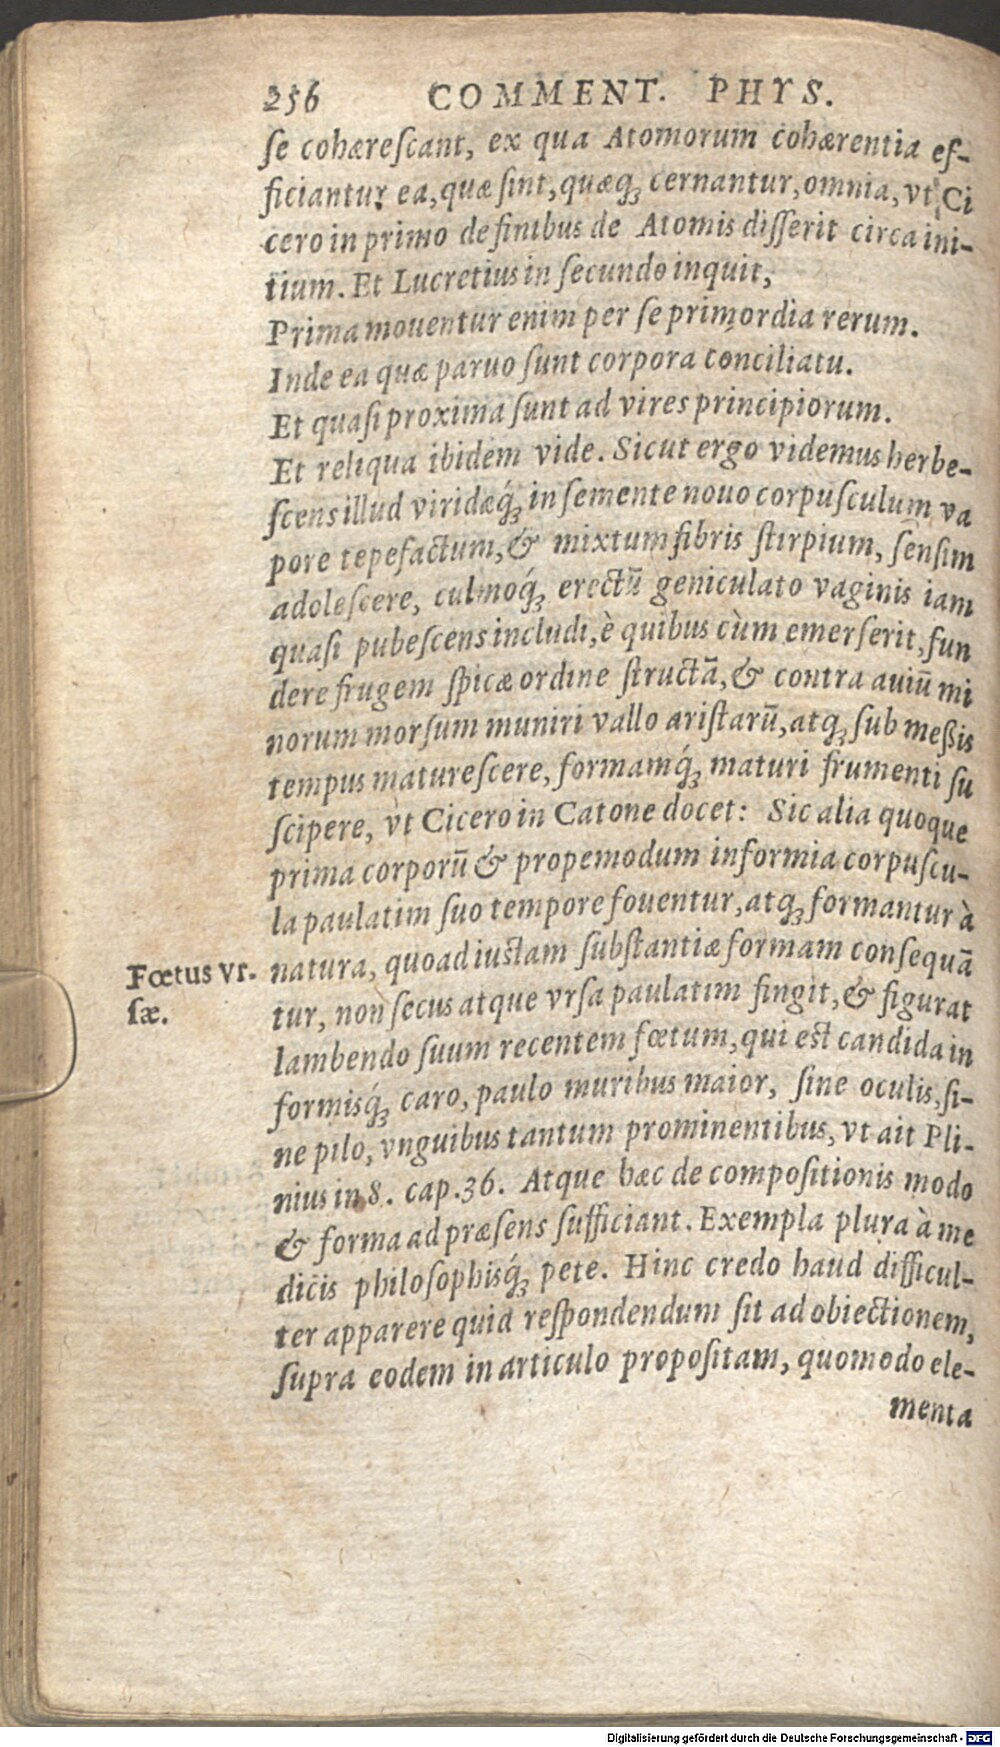 256 COMMENT. PHYS.
ſe cohæreſcant, ex qua Atomorum cohærentia ef-
ficiantur ea, quæ ſint, quæq́; cernantur, omnia, vt Ci
cero in primo de finibus de Atomis diſſerit circa ini-
tium. Et Lucretius in ſecundo inquit,
Prima mouentur enim per ſe primordia rerum.
Inde ea quæ paruo ſunt corpora conciliatu.
Et quaſi proxima ſunt ad vires principiorum.
Et reliqua ibidem vide. Sicut ergo videmus herbe-
ſcens illud viridæq́; in ſemente nouo corpuſculum va
pore tepefactum, & mixtum fibris ſtirpium, ſenſim
adoleſcere, culmoq́; erectū geniculato vaginis iam
quaſi pubeſcens includi, è quibus cùm emerſerit, fun
dere frugem ſpicæ ordine ſtructā, & contra auiū mi
norum morſum muniri vallo ariſtarū, atq; ſub meßis
tempus matureſcere, formamq́; maturi frumenti ſu
ſcipere, vt Cicero in Catone docet: Sic alia quoque
prima corporū & propemodum informia corpuſcu-
la paulatim ſuo tempore fouentur, atq; formantur à
Fœtus vr-
ſæ.
natura, quoad iuſtam ſubſtantiæ formam conſequā
tur, non ſecus atque vrſa paulatim fingit, & figurat
lambendo ſuum recentem fœtum, qui eſt candida in
formisq́; caro, paulo muribus maior, ſine oculis, ſi-
ne pilo, vnguibus tantum prominentibus, vt ait Pli-
nius in 8. cap. 36. Atque hæc de compoſitionis modo
& forma ad præſens ſufficiant. Exempla plura à me
dicis philoſophisq́; pete. Hinc credo haud difficul-
ter apparere quid reſpondendum ſit ad obiectionem,
ſupra eodem in articulo propoſitam, quomodo ele-
menta
Digitalisierung gefördert durch die Deutsche Forschungsgemeinschaft - DFG